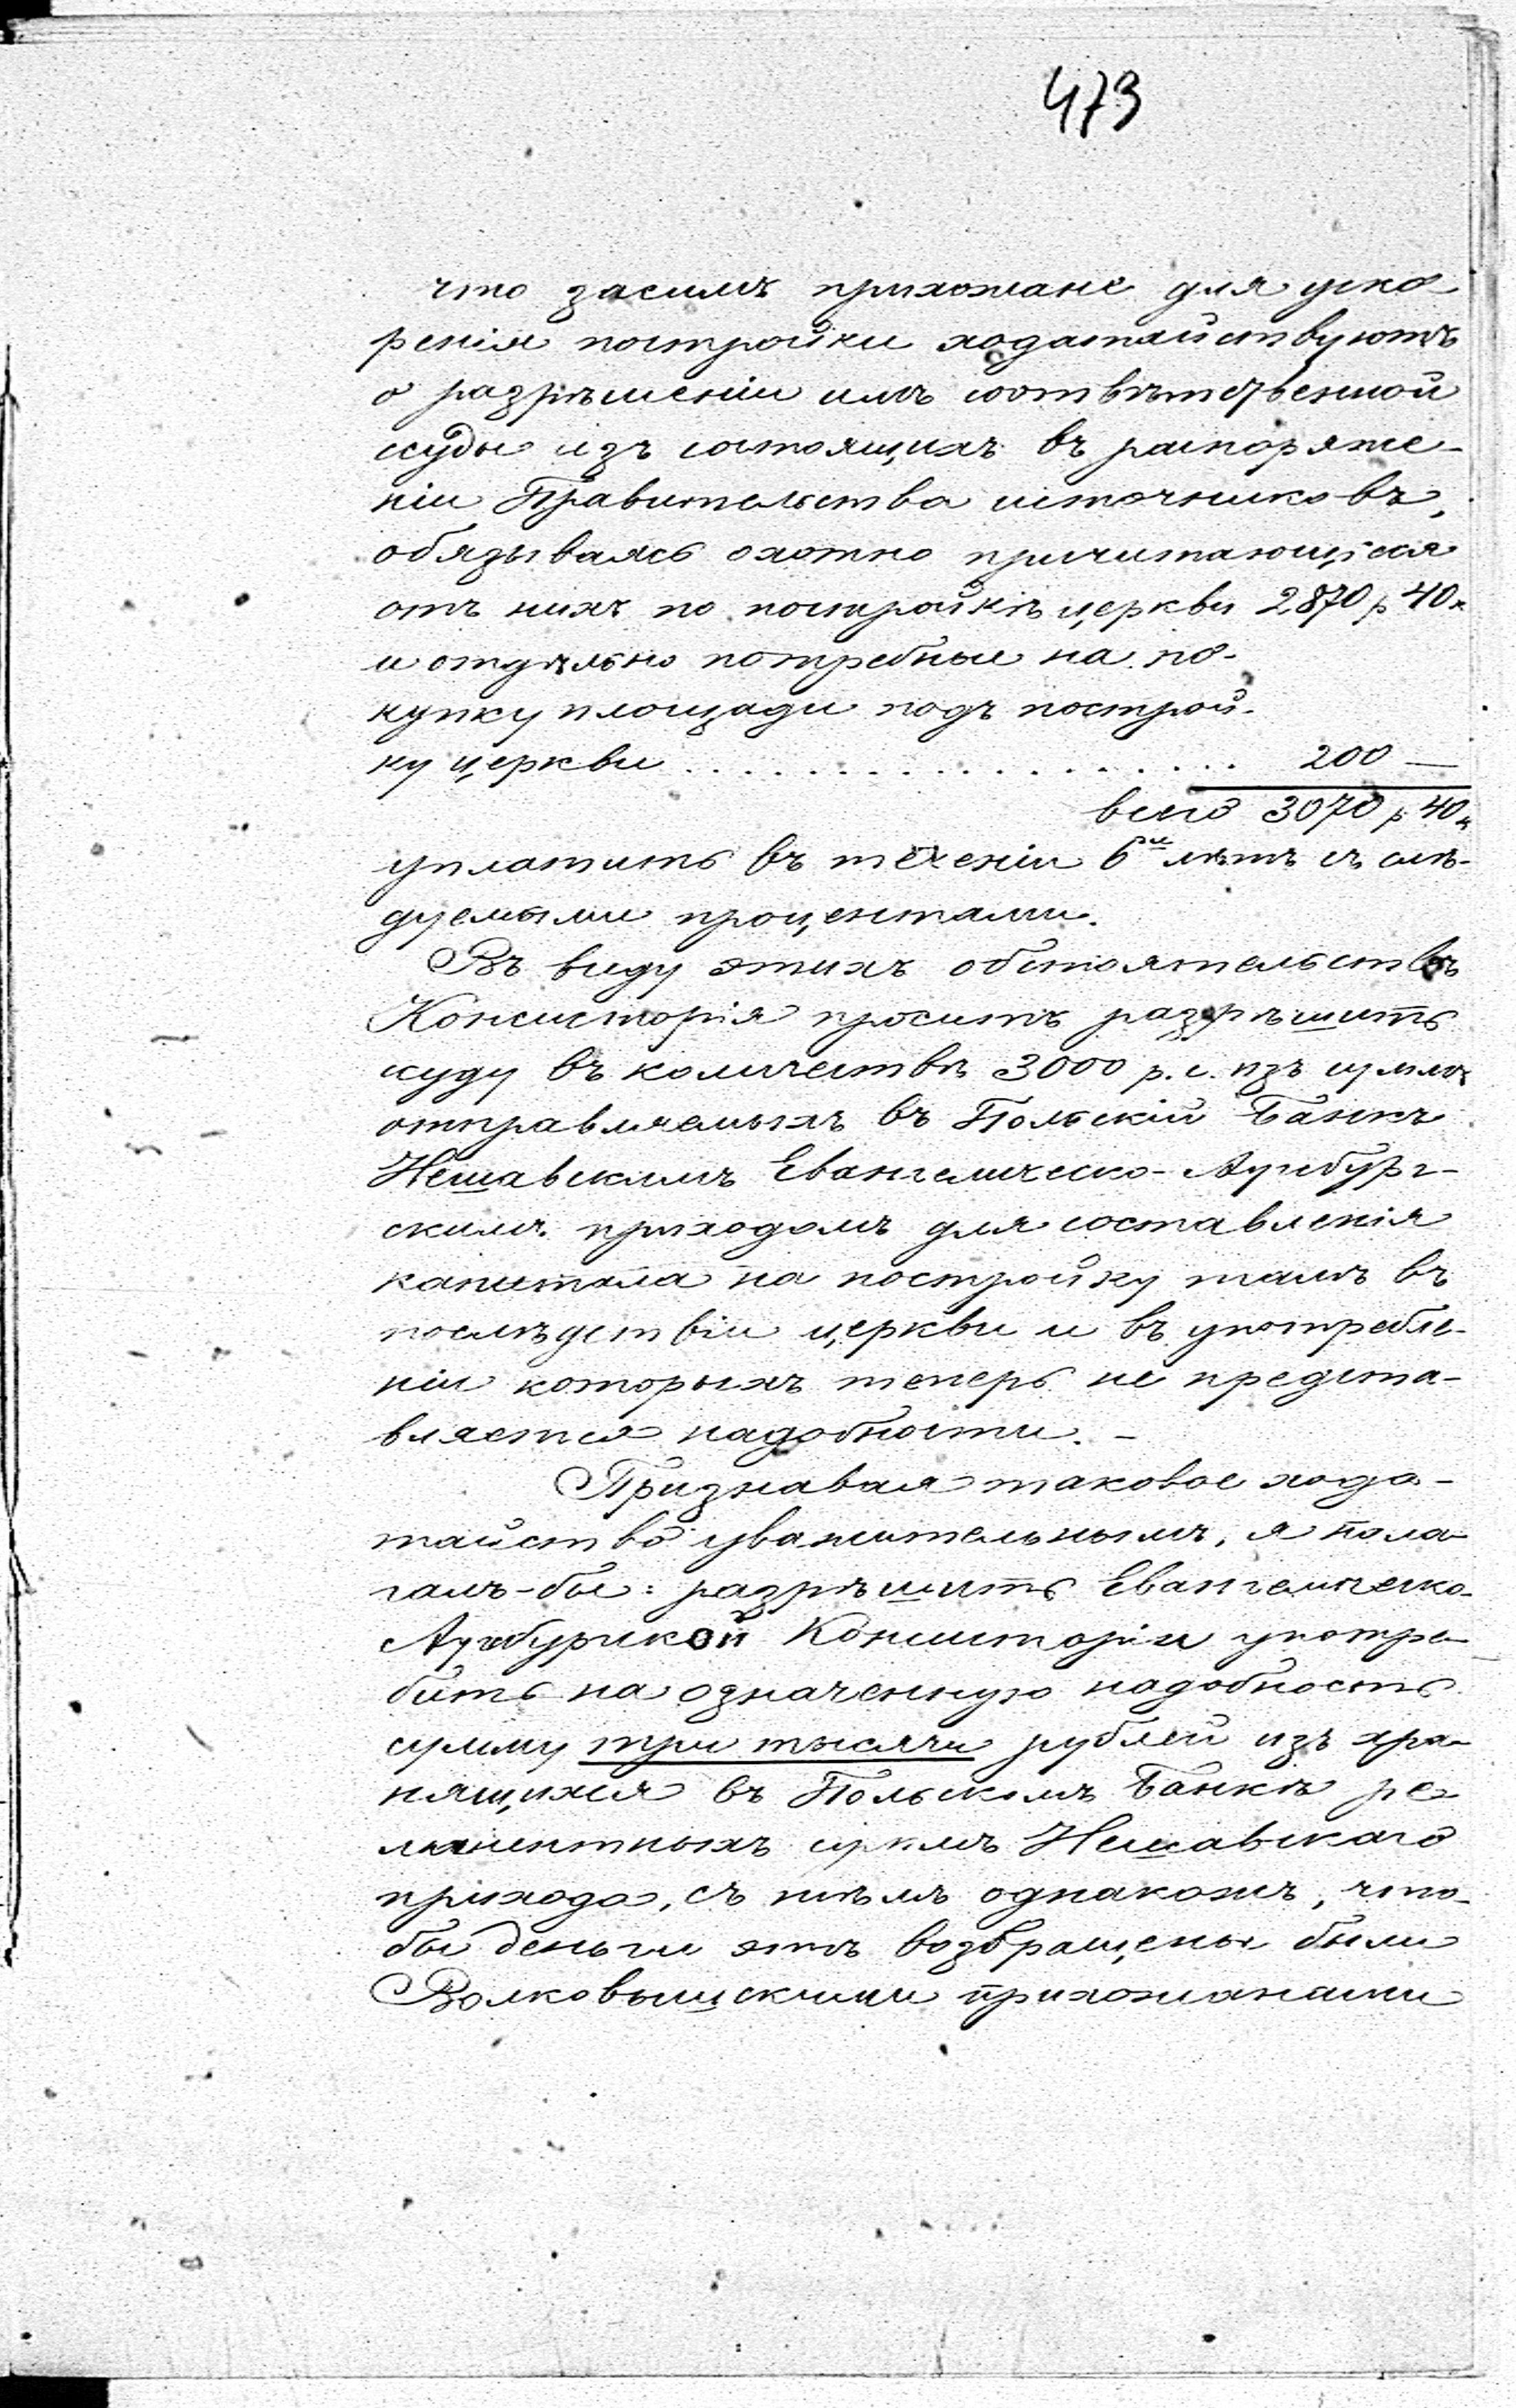 473
что засимъ прихожане для уско
ренія постройки ходатайствуютъ
о разрѣшеніи имъ соотвѣтственной
ссуды изъ состоящихъ въ распоряже-
ніи Правительства источниковъ,
обязываясь охотно причитающіяся
отъ нихъ по постройкѣ церкви 2870 р 40 к
и отдѣльно потребные на по-
купку площади подъ построй-
ку церкви . . . . . . . . . . . . . . . . . . 200 —
всего 3070 р 40 к
уплатить въ теченіи 6ти лѣтъ съ слѣ-
дуемыми процентами.
Въ виду этихъ обстоятельствъ
Консисторія проситъ разрѣшить
ссуду въ количествѣ 3000 р. с. изъ суммъ
отправляемыхъ въ Польскій Банкъ
Нешавскимъ Евангелическо-Аугсбург-
скимъ приходомъ для составленія
капитала на постройку тамъ въ
послѣдствіи церкви и въ употребле-
ніи которыхъ теперь не предста-
вляется надобности. -
Признавая таковое хода-
тайство уважительнымъ, я пола-
галъ-бы: разрѣшить Евангелическо-
Аугсбургской Консисторіи употре-
бить на означенную надобность
сумму три тысячи рублей изъ хра-
нящихся въ Польскомъ Банкѣ ре-
манентныхъ суммъ Нешавскаго
прихода, съ тѣмъ однакожъ, что-
бы деньги этѣ возвращены были
Волковышскими прихожанами